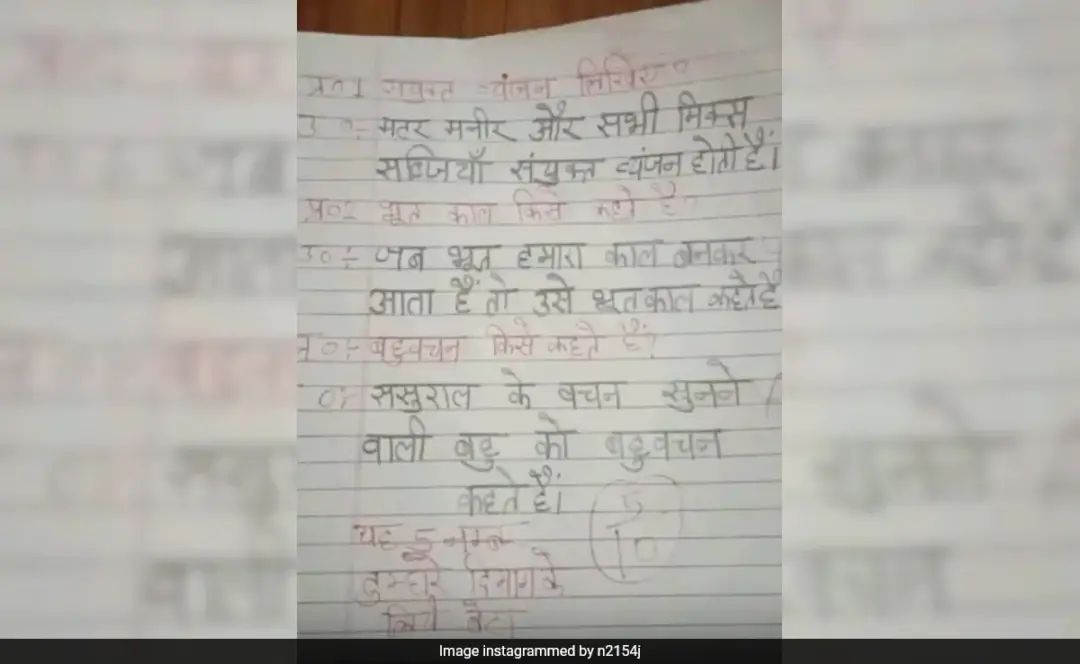 प्र०1 सयुक्त व्यंजन लिखिए?
उ०:- मटर मनीर और सभी मिक्स
सब्जियाँ संयुक्त व्यंजन होती हैं।
प्र०2 भूत काल किसे कहते है?
उ०:- जब भूत हमारा काल बनकर
आता हैं तो उसे भूतकाल कहते है
प्र०:- बहुवचन किसे कहते हैं?
उ०:- ससुराल के वचन सुनने
वाली बहु को बहुवचन
कहते हैं।
5
10
यह 5 नम्बर
तुम्हारे दिमाग के
लिये बेटा
Image instagrammed by n2154j